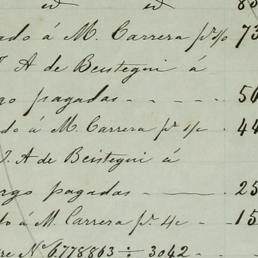 id id 83
ado á M. Carrera pr. s/c 73
J. A de Beistegui á
rgo pagadas - - - - 50
do á M. Carrera pr. s/c - 44
J. A de Beistegui á
argo pagadas - 25
do á M. Carrera pr. 4c - 15
re No. 6778863 ÷ 3042 -